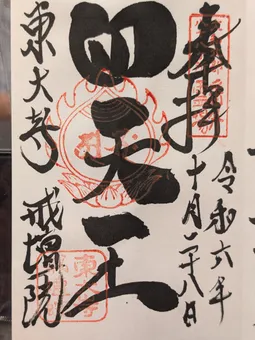 奉拝
令和六年
十月二十八日
四天王
東大寺 戒壇院
東大寺